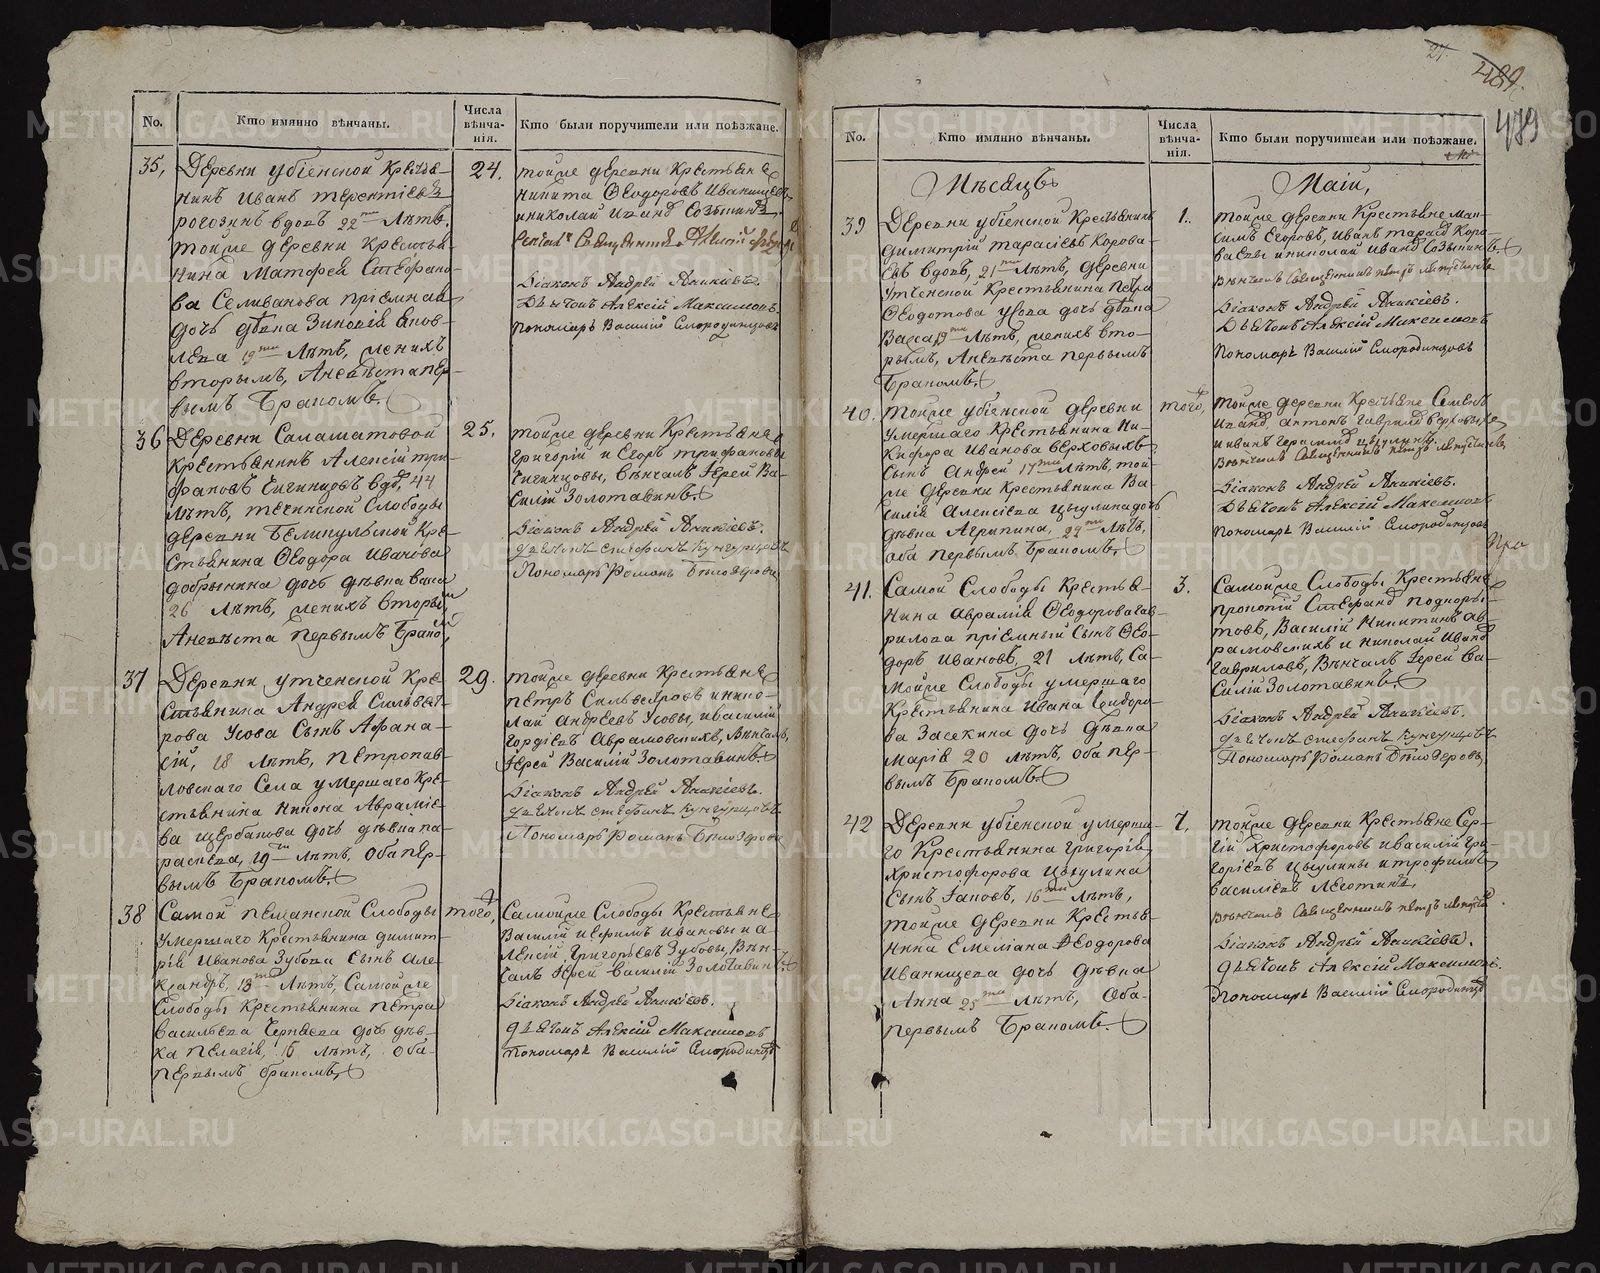 No.
Кто имянно вѣнчаны.
Числа
вѣнча-
нія.
Кто были поручители или поѣзжане.
35,
Деревни убіенской крестья-
нинъ Иванъ терентіевъ
рогозинъ вдовъ 22 лѣтъ,
тойже деревни крестья-
нина Матфея Стефано-
ва Селиванова пріемная
дочь дѣвка Зиновія
19 лѣтъ, женихъ
вторымъ, А невѣста пер-
вымъ бракомъ.
24.
тойже деревни крестьяне
никита Ѳеодоровъ Иванищевъ
и николай Ивановъ
Діаконъ Андрей Аникіевъ.
Дьячокъ Алексій Максимовъ
Пономарь Василій Смородинцовъ
36
Деревни Саламатовой
крестьянинъ Алексій три-
фановъ Чигинцовъ вдов, 44
лѣтъ, теченской Слободы
деревни Беликульской кре-
стьянина Ѳеодора Иванова
добрынина дочь дѣвка Васса
26 лѣтъ, женихъ вторым,
А невѣста первымъ бракомъ,
25.
тойже деревни крестьяне
григорій и Егоръ трифановы
Чигинцовы, вѣнчалъ Іерей Ва-
силій Золотавинъ.
Діаконъ Андрей Аникіевъ.
дьячокъ стефанъ кунгурцовъ
Пономарь Романъ Бѣлозеровъ
37
Деревни утченской кре-
стьянина Андрея Сильвест-
рова Усова Сынъ Афана-
сій, 18 лѣтъ, петропав-
ловскаго Села умершаго кре-
стьянина Никона Авраміе-
ва щербакова дочь дѣвка па-
раскева, 19 лѣтъ, оба пер-
вымъ бракомъ.
29.
тойже деревни крестьяне
петръ Сильвестровъ и нико-
лай андреевъ Усовы, и василій
гордіевъ Аврамовскихъ, вѣнчалъ,
Іерей Василій Золотавинъ.
Діаконъ Андрей Аникіевъ.
дьячокъ стефанъ кунгурцовъ
Пономарь Романъ Бѣлозеровъ
38
Самой песчанской Слободы
умершаго крестьянина димит-
рія Иванова Зубова Сынъ Але-
ксандръ, 18 лѣтъ, Самой же
Слободы крестьянина петра
васильева Черняева дочь дѣв-
ка пелагія, 16 лѣтъ, оба
первымъ бракомъ,
того,
Самой же Слободы крестьяне
Василій и ефимъ Ивановы и а-
лексій григорьевъ Зубовы, вѣн-
чалъ Іерей василій Золотавинъ.
Діаконъ Андрей Аникіевъ.
дьячокъ Алексій Максимовъ
Пономарь Василій Смородинцовъ
24
489.
489
No.
Кто имянно вѣнчаны.
Числа
вѣнча-
нія.
Кто были поручители или поѣзжане.
Мѣсяцъ
Маій,
39
Деревни убіенской крестьянинъ
димитрій тарасіевъ корова-
евъ вдовъ, 21 лѣтъ, деревни
утченской крестьянина петра
Ѳеодотова усова дочь дѣвка
Васса, 19 лѣтъ, женихъ вто-
рымъ, А невѣста первымъ
бракомъ.
1.
тойже деревни крестьяне мак-
симъ егоровъ, иванъ тарасовъ коро-
ваевы и николай иванов
Діаконъ Андрей Аникіевъ.
Дьячокъ Алексій Максимовъ
Пономарь Василій Смородинцовъ
40.
тойже убіенской деревни
умершаго крестьянина Ни-
кифора Иванова верховыхъ
Сынъ Андрей 17 лѣтъ, той-
же деревни крестьянина Ва-
силія алексіева цыулина дочь
дѣвка Агрипина, 22 лѣтъ,
оба первымъ бракомъ.
того,
тойже деревни крестьяне Семенъ
иванов, антонъ гавриловъ верховыхъ
и иванъ герасимовъ цыулинъ.
Діаконъ Андрей Аникіевъ.
Дьячокъ Алексій Максимовъ
Пономарь Василій Смородинцовъ
41.
Самой Слободы крестья-
нина аврамія Ѳеодорова гав-
рилова пріемный Сынъ Ѳео-
доръ Ивановъ, 21 лѣтъ, Са-
мой же Слободы умершаго
крестьянина ивана Сидоро-
ва Засекина дочь дѣвка
марія 20 лѣтъ, оба пер-
вымъ бракомъ.
3.
Самой же Слободы крестьяне
прокопій Стефанов подкоры-
товъ, Василій Никитинъ ав-
рамовскихъ и николай Иванов
гавриловъ, вѣнчалъ Іерей ва-
силій Золотавинъ.
Діаконъ Андрей Аникіевъ.
дьячокъ стефанъ кунгурцовъ
Пономарь Романъ Бѣлозеровъ,
42
Деревни убіенской умерша-
го крестьянина григорія
христофорова Цыулина
Сынъ Іаковъ, 16 лѣтъ,
тойже деревни крестья-
нина Емеліана Ѳеодорова
Иванищева дочь дѣвка
Анна 25 лѣтъ, оба
первымъ бракомъ.
7.
тойже деревни крестьяне Сер-
гій христофоровъ и василій гри-
горіевъ цыулины и трофимъ
василіевъ леготинъ,
Діаконъ Андрей Аникіевъ.
дьячокъ Алексій Максимовъ.
Пономарь Василій Смородинцовъ
METRIKI.GASO-URAL.RU